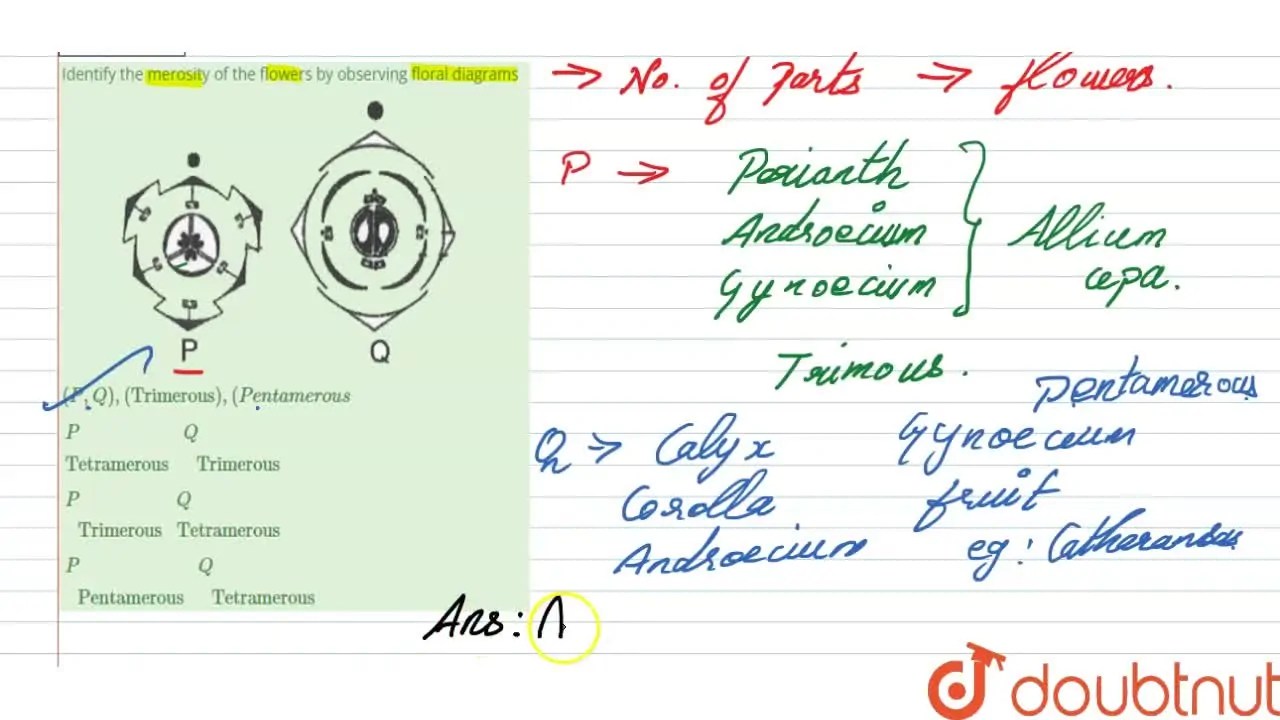 Identify the merosity of the flowers by observing floral diagrams
→ No. of Parts → flowers.
P → Perianth
Androecium
Gynoecium
Allium
cepa.
Trimous.
P
Q
(P, Q), (Trimerous), (Pentamerous
P Q
Tetramerous Trimerous
P Q
Trimerous Tetramerous
P Q
Pentamerous Tetramerous
Pentamerous
Q → Calyx
Corolla
Androecium
Gynoecium
fruit
eg:
Ans: A
doubtnut